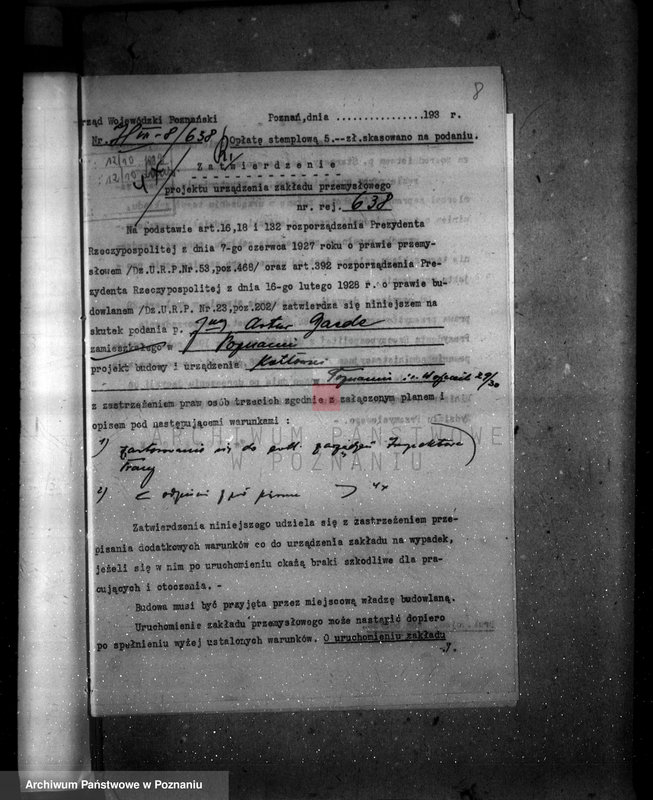 8
rząd Wojewódzki Poznański Poznań,dnia ................193 r.
Nr. 8/638 Opłatę stemplową 5.--zł.skasowano na podaniu.
12/10
12/10
Zatwierdzenie
projektu urządzenia zakładu przemysłowego
nr. rej. 638
Na podstawie art.16,18 i 132 rozporządzenia Prezydenta
Rzeczypospolitej z dnia 7-go czerwca 1927 roku o prawie przemy-
słowem /Dz.U.R.P.Nr.53,poz.468/ oraz art.392 rozporządzenia Pre-
zydenta Rzeczypospolitej z dnia 16-go lutego 1928 r. o prawie bu-
dowlanem /Dz.U.R.P. Nr.23,poz.202/ zatwierdza się niniejszem na
skutek podania p. Artur Gaede
zamieszkałego w Poznaniu
projekt budowy i urządzenia Kotłowni
w Poznaniu 29/30
z zastrzeżeniem praw osób trzecich zgodnie z załączonym planem i
opisem pod następującemi warunkami :
1) zastosowania się do zarządzeń Inspektora
Pracy
2)
ARCHIWUM PAŃSTWOWE
W POZNANIU
Zatwierdzenia niniejszego udziela się z zastrzeżeniem prze-
pisania dodatkowych warunków co do urządzenia zakładu na wypadek,
jeżeli się w nim po uruchomieniu okażą braki szkodliwe dla pra-
cujących i otoczenia. -
Budowa musi być przyjęta przez miejscową władzę budowlaną.
Uruchomienie zakładu przemysłowego może nastąpić dopiero
po spełnieniu wyżej ustalonych warunków. O uruchomieniu zakładu
./.
Archiwum Państwowe w Poznaniu